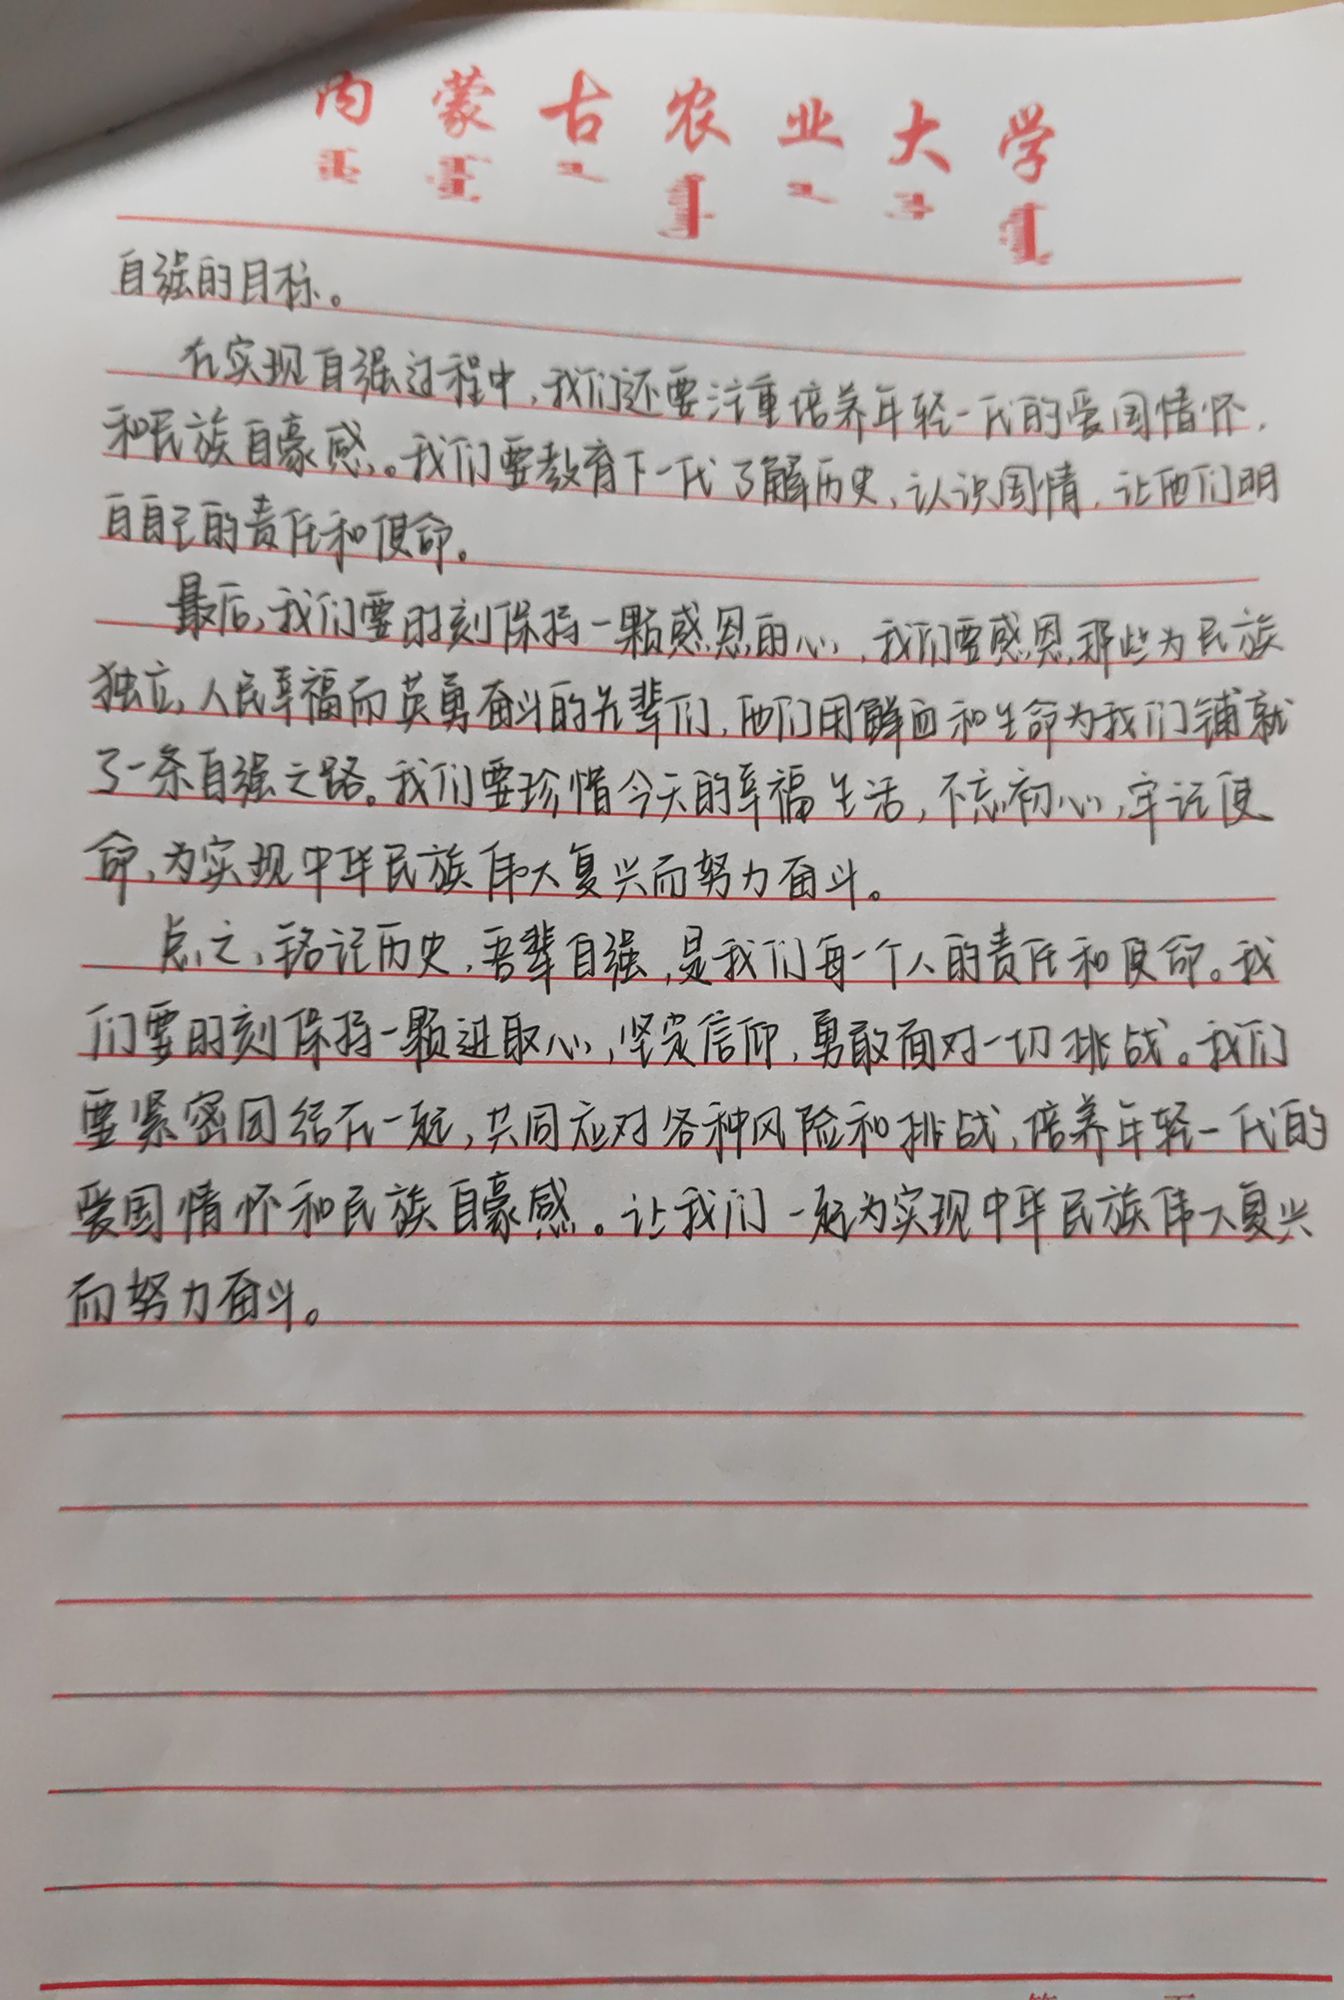 内蒙古农业大学
自强的目标。
在实现自强过程中，我们还要注重培养年轻一代的爱国情怀，
和民族自豪感。我们要教育下一代了解历史，认识国情，让他们明
白自己的责任和使命。
最后，我们要时刻保持一颗感恩的心，我们要感恩那些为民族
独立，人民幸福而英勇奋斗的先辈们，他们用鲜血和生命为我们铺就
了一条自强之路。我们要珍惜今天的幸福生活，不忘初心，牢记使
命，为实现中华民族伟大复兴而努力奋斗。
总之，铭记历史，吾辈自强，是我们每一个人的责任和使命。我
们要时刻保持一颗进取心，坚定信仰，勇敢面对一切挑战。我们
要紧密团结在一起，共同应对各种风险和挑战，培养年轻一代的
爱国情怀和民族自豪感。让我们一起为实现中华民族伟大复兴
而努力奋斗。